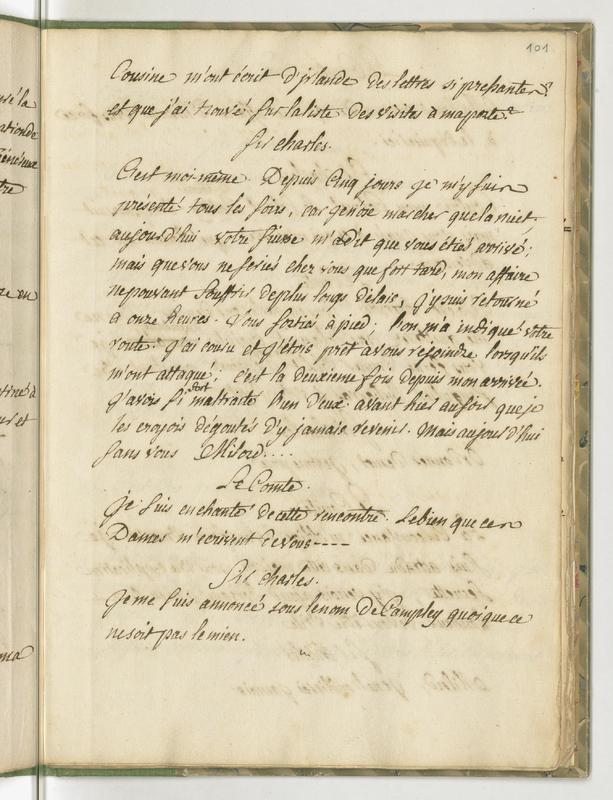 101
Cousine m'ont écrit d'irlande des lettres si pressantes,
et que j'ai trouvé sur la liste des visites à ma porte?
Sir charles.
C'est moi-même. Depuis Cinq jours je m'y suis
présenté tous les soirs, car je n'ose marcher que la nuit,
aujourd'hui votre suisse m'a dit que vous étiés arrivé;
mais que vous ne seriés chez vous que fort tard, mon affaire
ne pouvant Souffrir de plus longs délais, j'y suis retourné
à onze heures. Vous sortiés à pied; l'on m'a indiqué votre
route. j'ai couru et j'étois prêt à vous rejoindre lorsqu'ils
m'ont attaqué; c'est la deuxieme fois depuis mon arrivée.
j'avois si fort maltraité l'un d'eux avant hier au soir que je
les croyois dégoutés d'y jamais revenir. Mais aujourd'hui
sans vous Milord....
Le Comte.
Je suis enchanté de cette rencontre. Le bien que ces
Dames m'écrivent de vous----
Sir charles.
Je me suis annoncé sous le nom de Campley quoique ce
ne soit pas le mien.